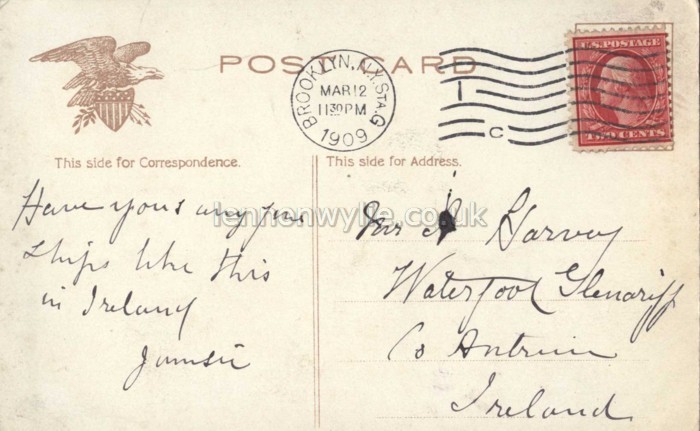 POST CARD
BROOKLYN, N.Y. STA. G
MAR 12
11 30 PM
1909
I
C
U.S. POSTAGE
TWO CENTS
This side for Correspondence.
This side for Address.
lennonwylie.co.uk
Have yous any
ships like this
in Ireland
Harvey
Waterfoot Glenariff
Co Antrim
Ireland